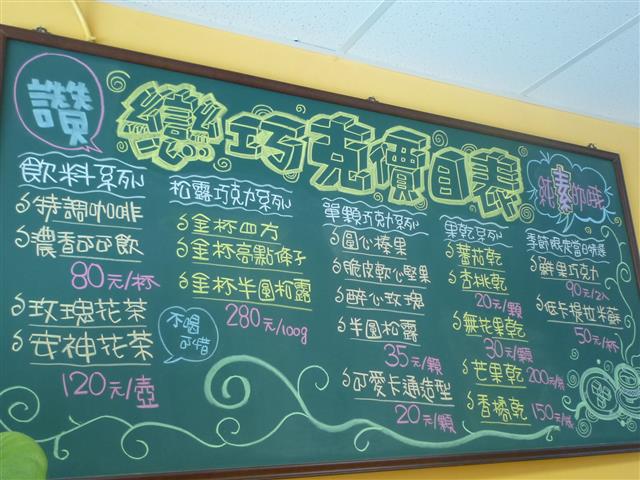 讚
戀巧克價目表
純素咖啡
飲料系列
特調咖啡
濃香可可飲
80元/杯
玫瑰花茶
安神花茶
120元/壺
松露巧克力系列
金杯四方
金杯亮點條子
金杯半圓松露
280元/100g
不喝可惜
單顆巧克力系列
圓心榛果
脆皮軟心堅果
醉心玫瑰
半圓松露
35元/顆
可愛卡通造型
20元/顆
果乾系列
蕃茄乾
杏桃乾
20元/顆
無花果乾
30元/顆
芒果乾 200元/
香橘乾 150元/
季節限定當日特選
鮮果巧克力
90元/2入
低卡提拉米酥
50元/杯